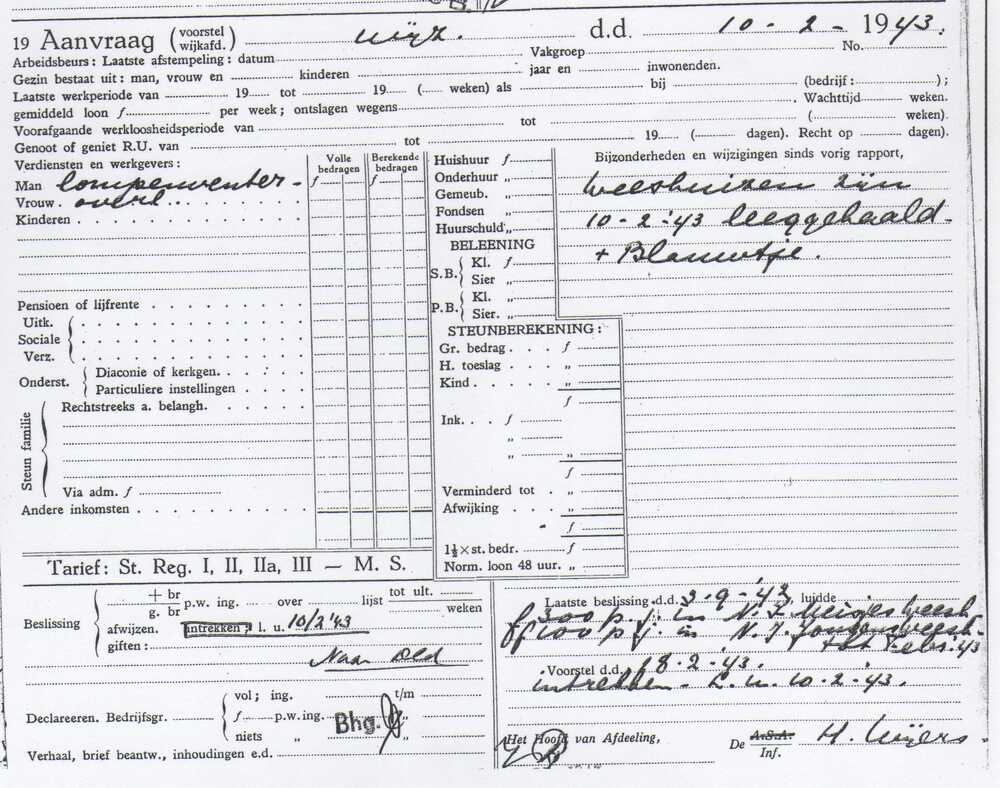 19 Aanvraag (voorstel wijkafd.) wijz. d.d. 10 - 2 - 1943.
Arbeidsbeurs: Laatste afstempeling: datum Vakgroep No.
Gezin bestaat uit: man, vrouw en kinderen jaar en inwonenden.
Laatste werkperiode van 19 tot 19 ( weken) als bij (bedrijf: );
gemiddeld loon f per week; ontslagen wegens . Wachttijd weken.
Voorafgaande werkloosheidsperiode van tot ( weken).
Genoot of geniet R.U. van tot 19 ( dagen). Recht op dagen).
Verdiensten en werkgevers:
Volle bedragen
Berekende bedragen
Man lompenventer - f f
Vrouw. overl.
Kinderen
Pensioen of lijfrente
Uitk.
Sociale
Verz.
Onderst. { Diaconie of kerkgen.
Particuliere instellingen
Steun familie
Rechtstreeks a. belangh.
Via adm. f
Andere inkomsten
Huishuur f
Onderhuur „
Gemeub. „
Fondsen „
Huurschuld „
BELEENING
S.B. { Kl. f
Sier „
P.B. { Kl. „
Sier. „
STEUNBEREKENING:
Gr. bedrag . . . f
H. toeslag . . . . „
Kind . . . . . „
f
Ink. . . f
„
„ „
f
Verminderd tot . „
Afwijking . . . „
f
1½ × st. bedr. . f
Norm. loon 48 uur. „
Bijzonderheden en wijzigingen sinds vorig rapport,
Weeshuizen zijn
10-2-'43 leeggehaald.
+ Blauwtje.
Tarief: St. Reg. I, II, IIa, III — M. S.
Beslissing
+ br
g. br p.w. ing. over lijst tot ult. weken
afwijzen. intrekken; l. u. 10/2 '43
giften:
Naar Old
Declareeren. Bedrijfsgr.
vol; ing. t/m
f p.w.ing. „
niets „ „
Bhg.
Verhaal, brief beantw., inhoudingen e.d.
Laatste beslissing d.d. 3-9-'42, luidde
f 300 p.j. in N.I. Meisjesweesh.
f 100 p.j. in N.I. Jongensweesh.
tot Febr. '43
Voorstel d.d. 18-2-'43.
intrekken - L.u. 10-2-'43.
Het Hoofd van Afdeeling,
De A.S.A.
Inf.